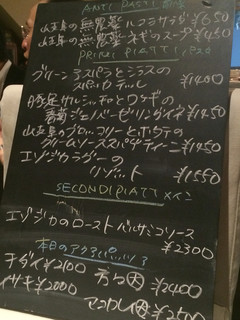 ANTI PASTI 前菜
山五島の無農薬ルッコラサラダ ¥650
山五島の無農薬ネギのスープ ¥450
PRIMI PIATTI
グリーンアスパラとシラスの
スパゲティ ¥1400
豚足サルシッチャとワラビの
ジェノベーゼリングイネ ¥1450
山五島のブロッコリーとホタテの
クリームソーススパゲティーニ ¥1450
エゾジカラグーの
リゾット ¥1550
SECONDI PIATTI メイン
エゾジカのローストバルサミコソース
¥2300
本日のアクアパッツァ
チダイ ¥2100
¥2400
イサキ ¥2000
¥2500